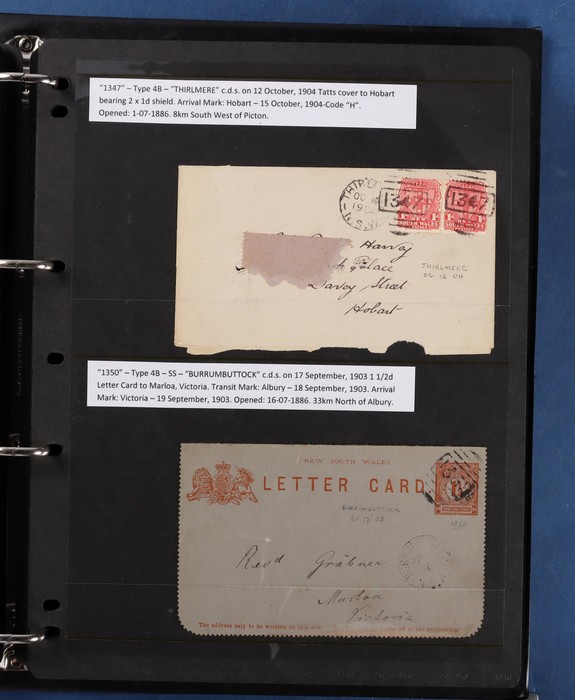 "1347" – Type 4B – "THIRLMERE" c.d.s. on 12 October, 1904 Tatts cover to Hobart
bearing 2 x 1d shield. Arrival Mark: Hobart – 15 October, 1904-Code "H".
Opened: 1-07-1886. 8km South West of Picton.
1347 1347
Harvey
Palace
Davey Street
Hobart
THIRLMERE
OC 12 04
"1350" – Type 4B – SS – "BURRUMBUTTOCK" c.d.s. on 17 September, 1903 1 1/2d
Letter Card to Marloa, Victoria. Transit Mark: Albury – 18 September, 1903. Arrival
Mark: Victoria – 19 September, 1903. Opened: 16-07-1886. 33km North of Albury.
NEW SOUTH WALES
LETTER CARD
BURRUMBUTTOCK
1350
Revd Gräbner
Marloa
Victoria
The address only to be written on this side